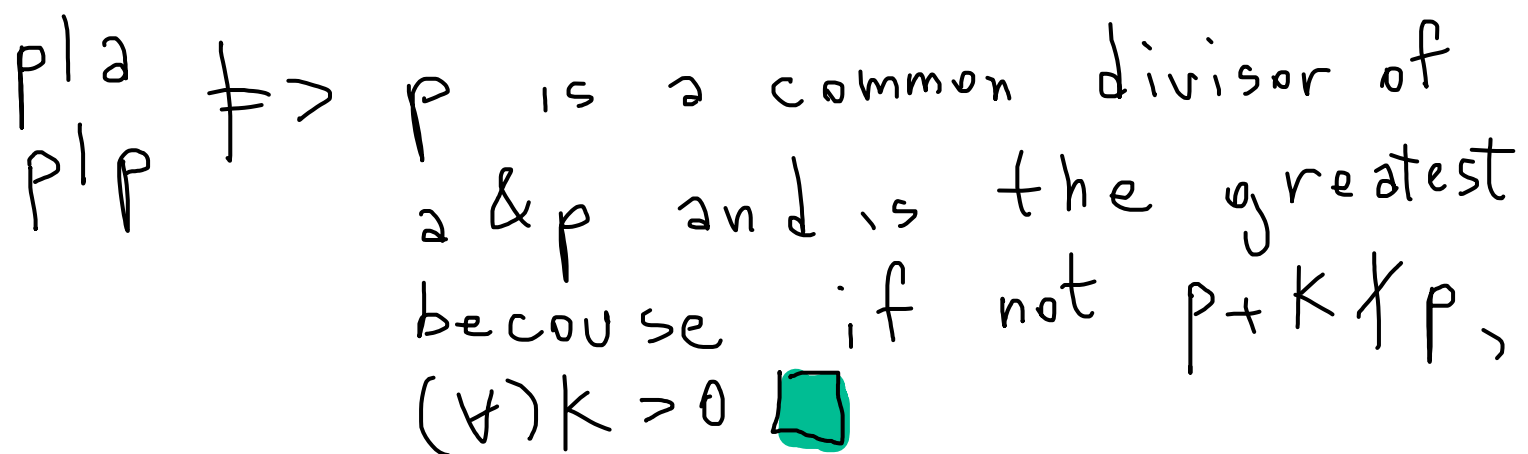 p|a ≠> p is a common divisor of
p|p a & p and is the greatest
becouse if not p+K∤p,
(∀)K>0